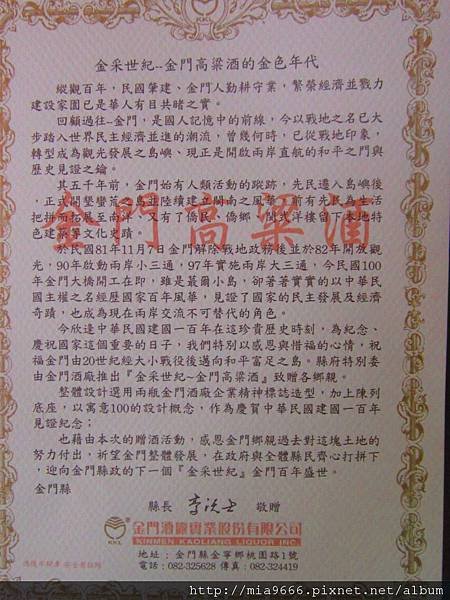 金采世紀--金門高粱酒的金色年代
縱觀百年，民國肇建、金門人勤耕守業，繁榮經濟並戮力
建設家園已是華人有目共睹之實。
回顧過往--金門，是國人記憶中的前線，今以戰地之名已大
步踏入世界民主經濟並進的潮流，曾幾何時，已從戰地印象，
轉型成為觀光發展之島嶼、現正是開啟兩岸直航的和平之門與
歷史見證之鑰。
其五千年前，金門始有人類活動的蹤跡，先民遷入島嶼後
，正式開墾蠻荒之島並陸續建立閩南之風華，前有先民為生活
把拼而拓展至南洋，又有了僑民、僑鄉、閩式洋樓留了本地特
色建築等文化史蹟。
金門高粱酒
於民國81年11月7日金門解除戰地政務後並於82年開放觀
光，90年啟動兩岸小三通，97年實施兩岸大三通，今民國100
年金門大橋開工在即，雖是蕞爾小島，卻著著實實的以中華民
國主權之名經歷國家百年風華，見證了國家的民主發展及經濟
奇蹟，也成為現在兩岸交流不可替代的角色。
今欣逢中華民國建國一百年在這珍貴歷史時刻，為紀念、
慶祝國家這個重要的日子，我們特別以感恩與惜福的心情，祝
福金門由20世紀經大小戰役後邁向和平富足之島。縣府特別委
由金門酒廠推出『金采世紀~金門高粱酒』致贈各鄉親。
整體設計選用兩瓶金門酒廠企業精神標誌造型，加上陳列
底座，以寓意100的設計概念，作為慶賀中華民國建國一百年
見證紀念；
也藉由本次的贈酒活動，感恩金門鄉親過去對這塊土地的
努力付出，祈望金門整體發展，在政府與全體縣民齊心打拼下
，迎向金門縣政的下一個『金采世紀』金門百年盛世。
金門縣
縣長 李沃士 敬贈
KKL 金門酒廠實業股份有限公司
KINMEN KAOLIANG LIQUOR INC.
地址：金門縣金寧鄉桃園路1號
電話：082-325628 傳真：082-324419
酒後不開車 安全有保障
http://mia9666.pixnet.net/album